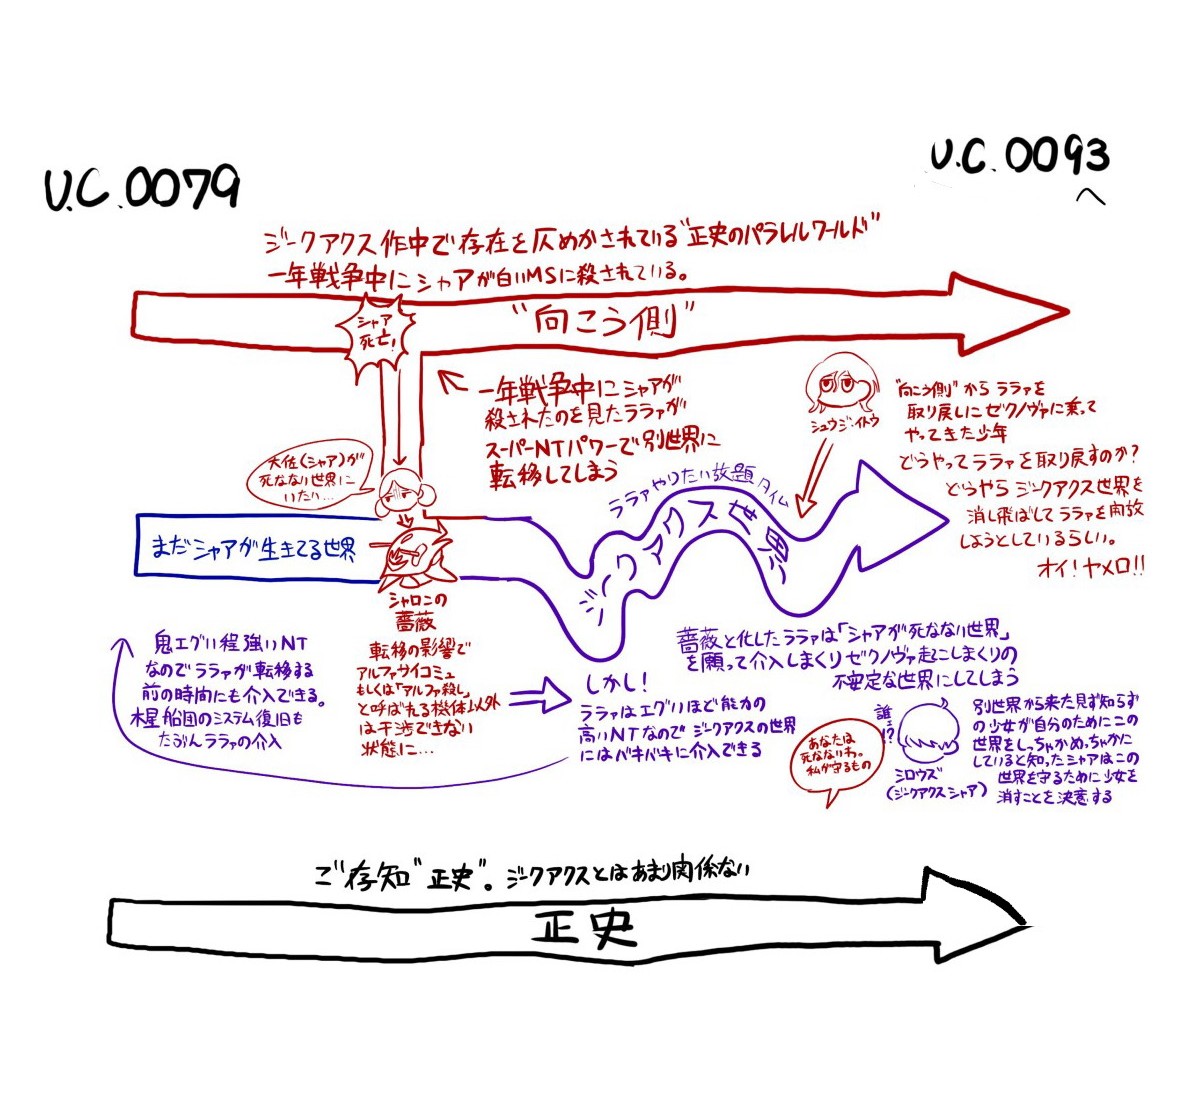 U.C.0079
U.C.0093
へ
ジークアクス作中で存在を仄めかされている"正史のパラレルワールド"
一年戦争中にシャアが白いMSに殺されている。
"向こう側"
シャア
死亡!
一年戦争中にシャアが
殺されたのを見たララァが
スーパーNTパワーで別世界に
転移してしまう
シュウジ・イトウ
"向こう側"からララァを
取り戻しにゼクノヴァに乗って
やってきた少年
どうやってララァを取り戻すのか?
どうやらジークアクス世界を
消し飛ばしてララァを開放
しようとしているらしい。
オイ!ヤメロ!!
大佐(シャア)が
死なない世界に
いたい…
まだシャアが生きてる世界
ララァやりたい放題タイム
ジークアクス世界
シャロンの
薔薇
転移の影響で
アルファサイコミュ
もしくは「アルファ殺し」
と呼ばれる機体以外
は干渉できない
状態に…
鬼エグい程強いNT
なのでララァが転移する
前の時間にも介入できる。
木星船団のシステム復旧も
たぶんララァの介入
しかし!
ララァはエグいほど能力の
高いNTなのでジークアクスの世界
にはバキバキに介入できる
薔薇と化したララァは「シャアが死なない世界」
を願って介入しまくりゼクノヴァ起こしまくりの
不安定な世界にしてしまう
あなたは
死なないわ。
私が守るもの
誰!?
シロウズ
(ジークアクスシャア)
別世界から来た見ず知らず
の少女が自分のためにこの
世界をしっちゃかめっちゃかに
していると知ったシャアはこの
世界を守るために少女を
消すことを決意する
ご存知"正史"。ジークアクスとはあまり関係ない
正史